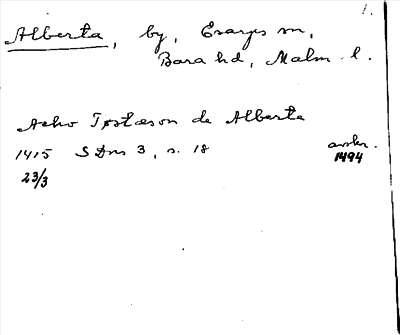 1.
Alberta, by, Esarps sn,
Bara hd, Malm. l.
Acho Tostæson de Alberta
1415 SDns 3, s. 18 avskr.
23/3 1494